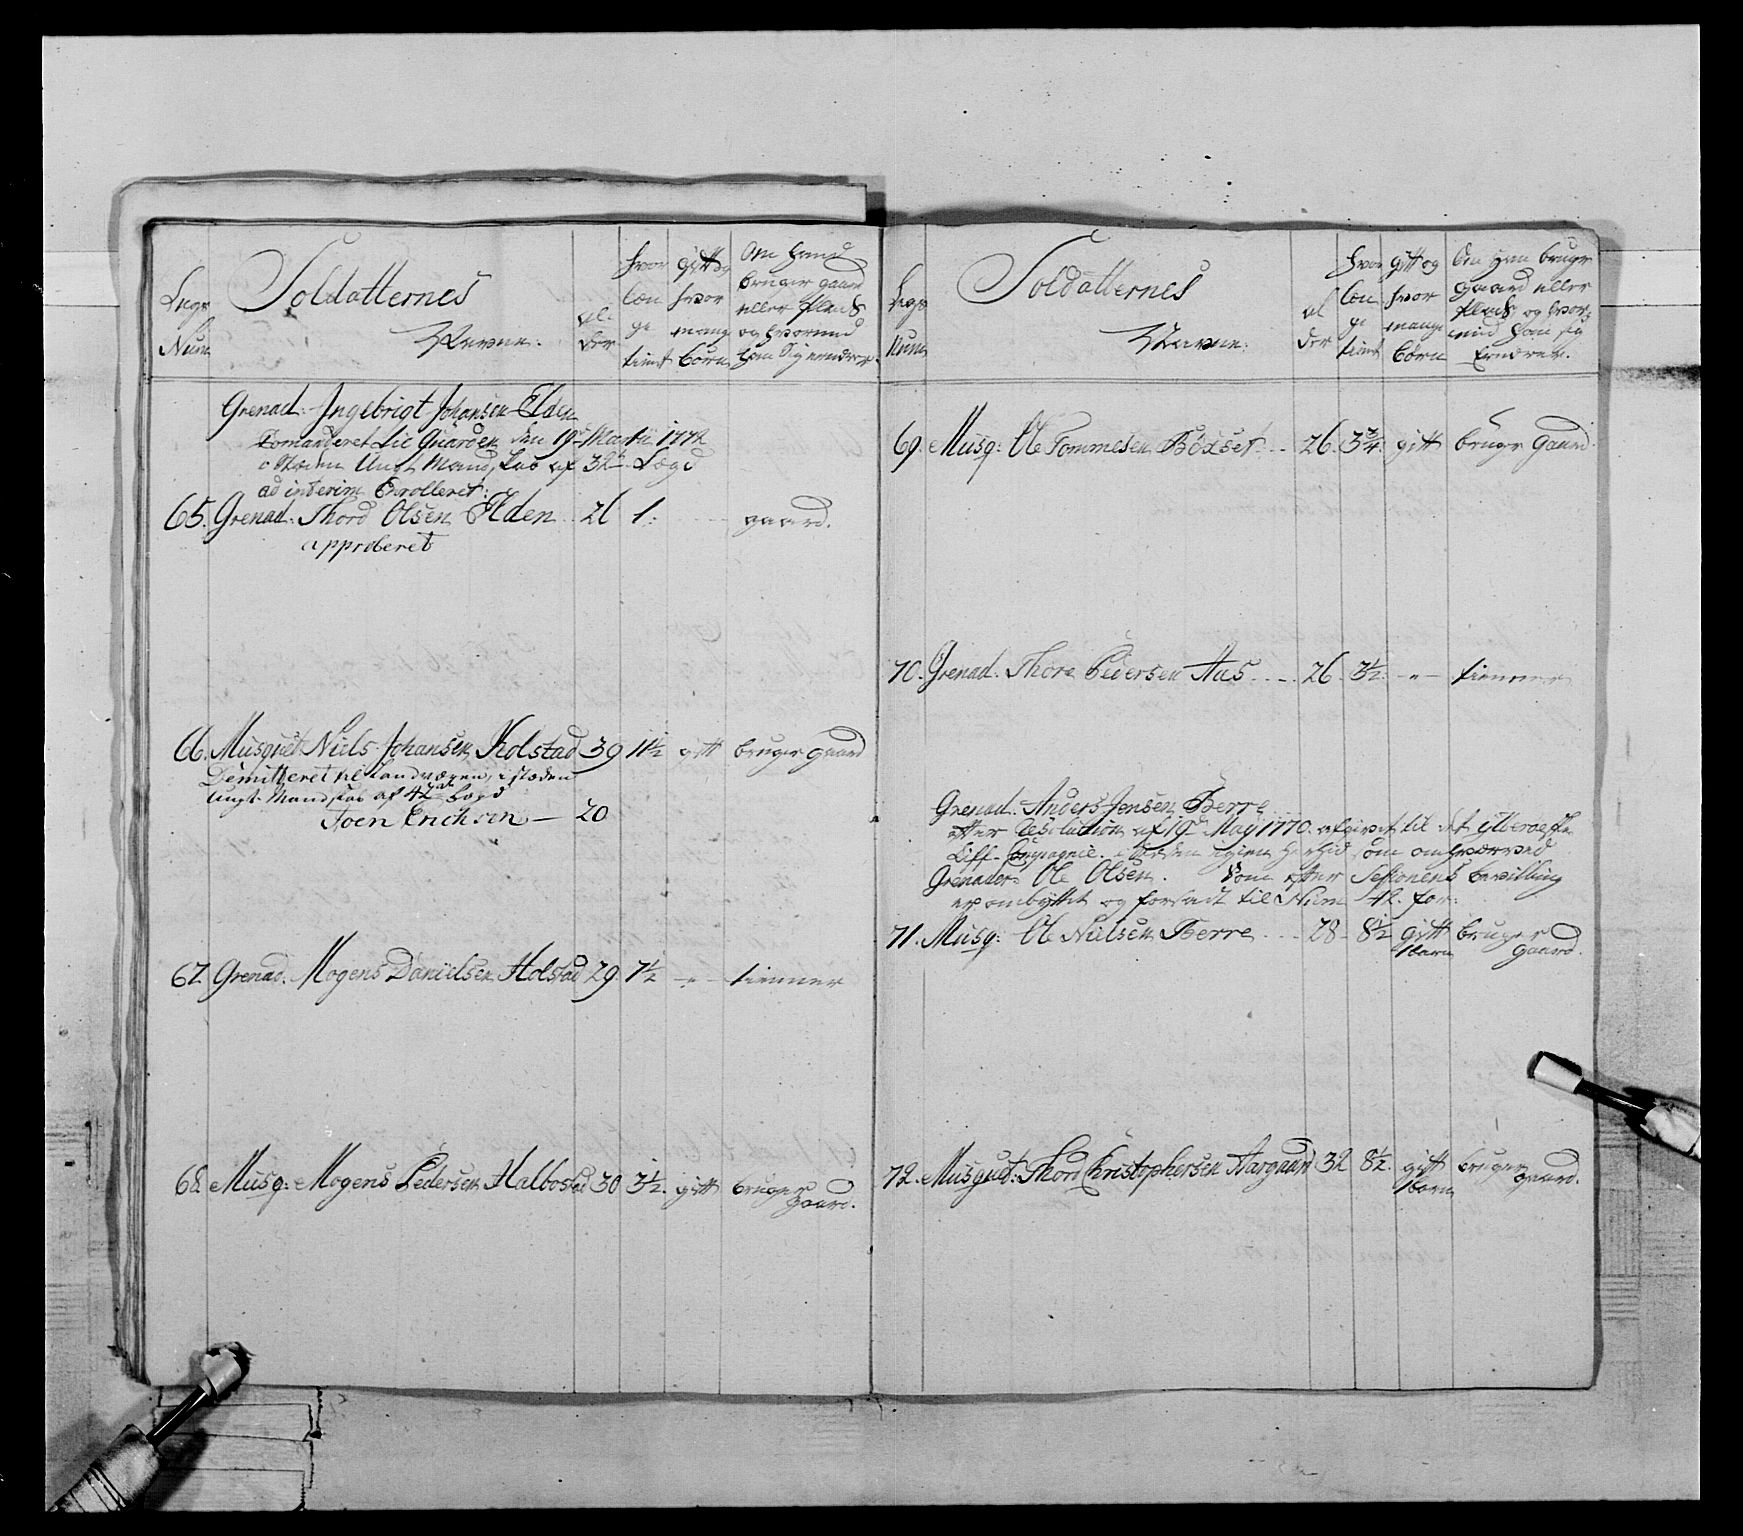 Legs Num
Soldatternes Navne.
al: der
hvor læn ge tient
gift og hvor mang børn
Om hand bruger gaard eller Plads og hvormed han Sig ernærer.
Grenad: Ingebrigt Johansen Elden
Comanderet til Guarden den 19de Martii 1772
i Stæden Ungt Mandskab af 32te Lægd
ad interim Enrolleret:
65. Grenad: Thord Olsen Elden 26 1: gaard.
approberet
66. Musquet: Niels Johansen Kolstad 39 11½ gift bruger gaard
Demitteret til Landværen, i stæden
Ungt Mandskab af 42de Lægd
Joen Erichsen — 20
67. Grenad. Mogens Danielsen Holstad 29. 7½ -„- tienner
68. Musq: Mogens Pedersen Halbostad 30 3½. gift bruger
gaard.
Legs Num
Soldatternes Navne:
al der
hvor læn ge tient
gift og hvor mange børn
Om Han bruger gaard eller Plads og hvor: med han sig Ernærer.
69. Musq: Ole Tommesen Bödset .. 26. 3¾. gift bruger Gaard.
70. Grenad: Thore Pedersen Aas ... 26. 3½. -„- tienner
Grenad: Anders Jensen Berre
efter Resolution af 19de May 1770. afgivet til det
Liff-Compagnie. i Stæden igien som omhværved
Grenader Ole Olsen. Som efter Sessionens bevilling
er ombyttet og forsadt til Num 42. for:
71. Musq: Ole Nielsen Berre ... 28 - 8½ gift bruger
1 barn Gaard.
72. Musquet: Thord Christophersen Aargaard 32 8½. gift bruger
1 barn gaard.